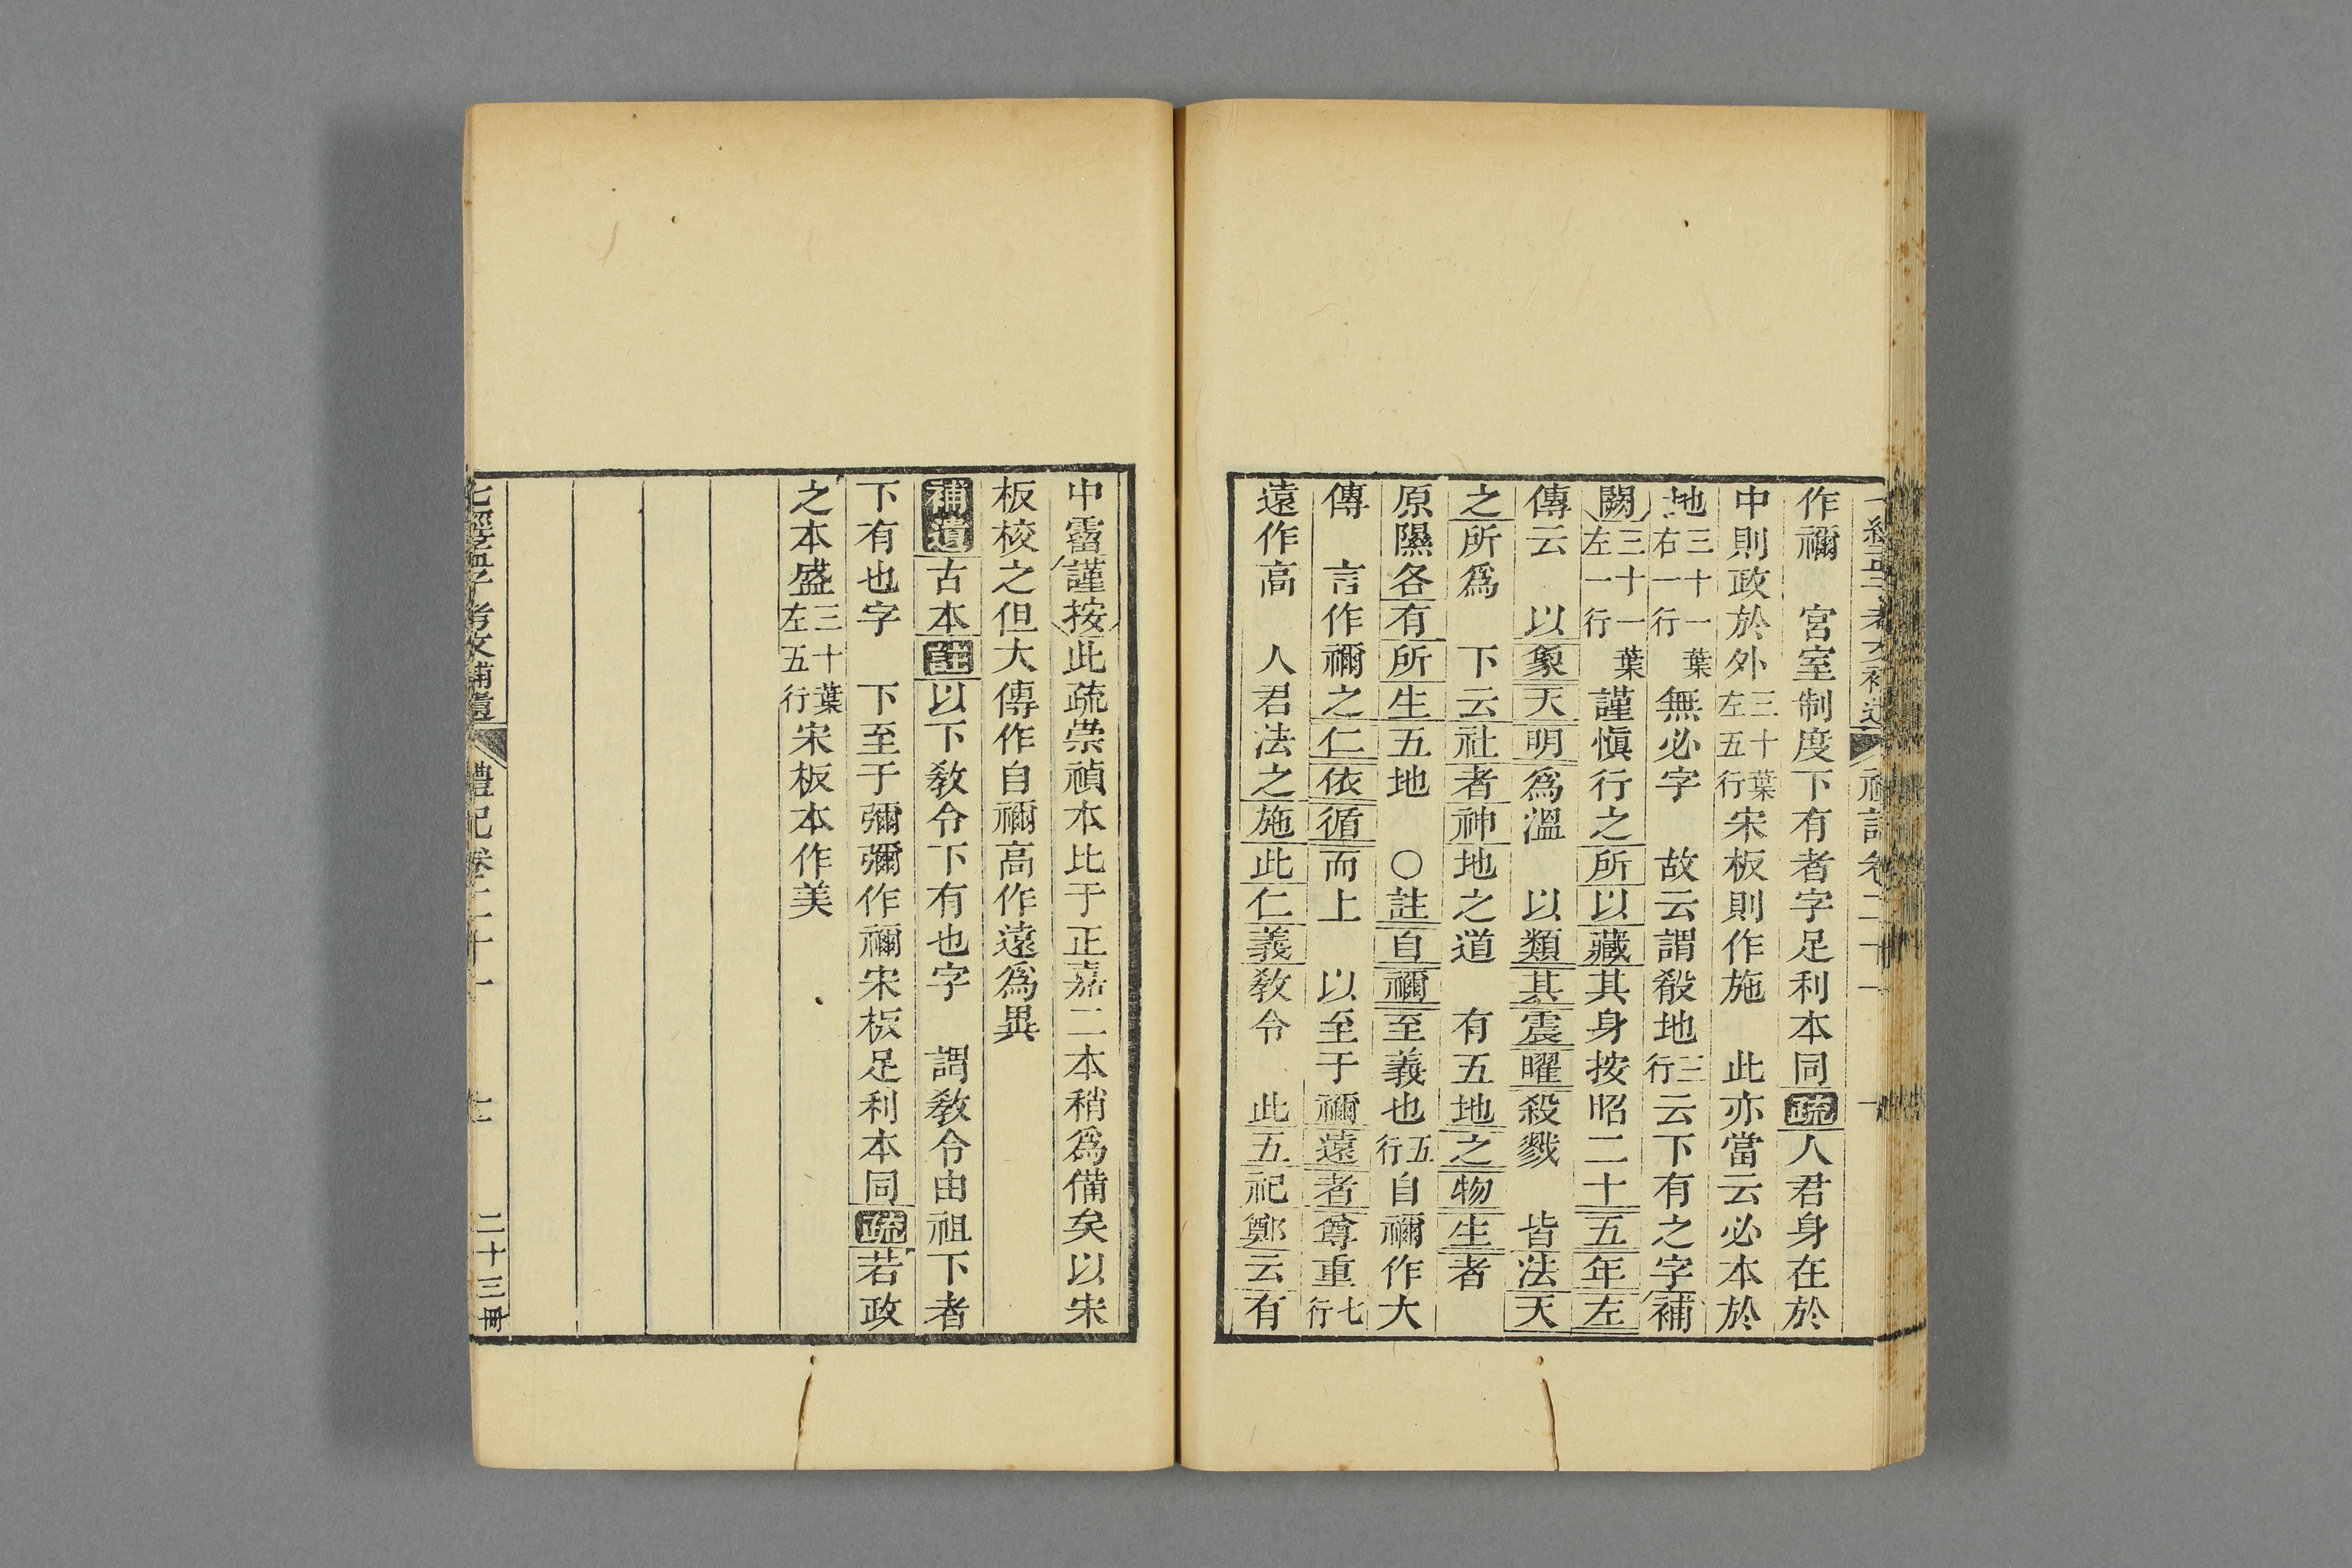 作禰　宮室制度下有者字足利本同疏人君身在於
中則政於外三十葉左五行宋板則作施　此亦當云必本於
地三十一葉右一行無必字　故云謂殽地三行云下有之字補
闕三十一葉左一行謹愼行之所以藏其身按昭二十五年左
傳云　以象天明爲溫　以類其震曜殺戮　皆法天
之所爲　下云社者神地之道　有五地之物生者
原隰各有所生五地　○註自禰至義也五行自禰作大
傳　言作禰之仁依循而上　以至于禰遠者尊重七行
遠作高　人君法之施此仁義敎令　此五祀鄭云有
中霤謹按此疏崇禎本比于正嘉二本稍爲備矣以宋
板校之但大傳作自禰高作遠爲異
補遺古本註以下敎令下有也字　謂敎令由祖下者
下有也字　下至于彌彌作禰宋板足利本同疏若政
之本盛三十葉左五行宋板本作美
七經孟子考文補遺　禮記卷二十一　二十三